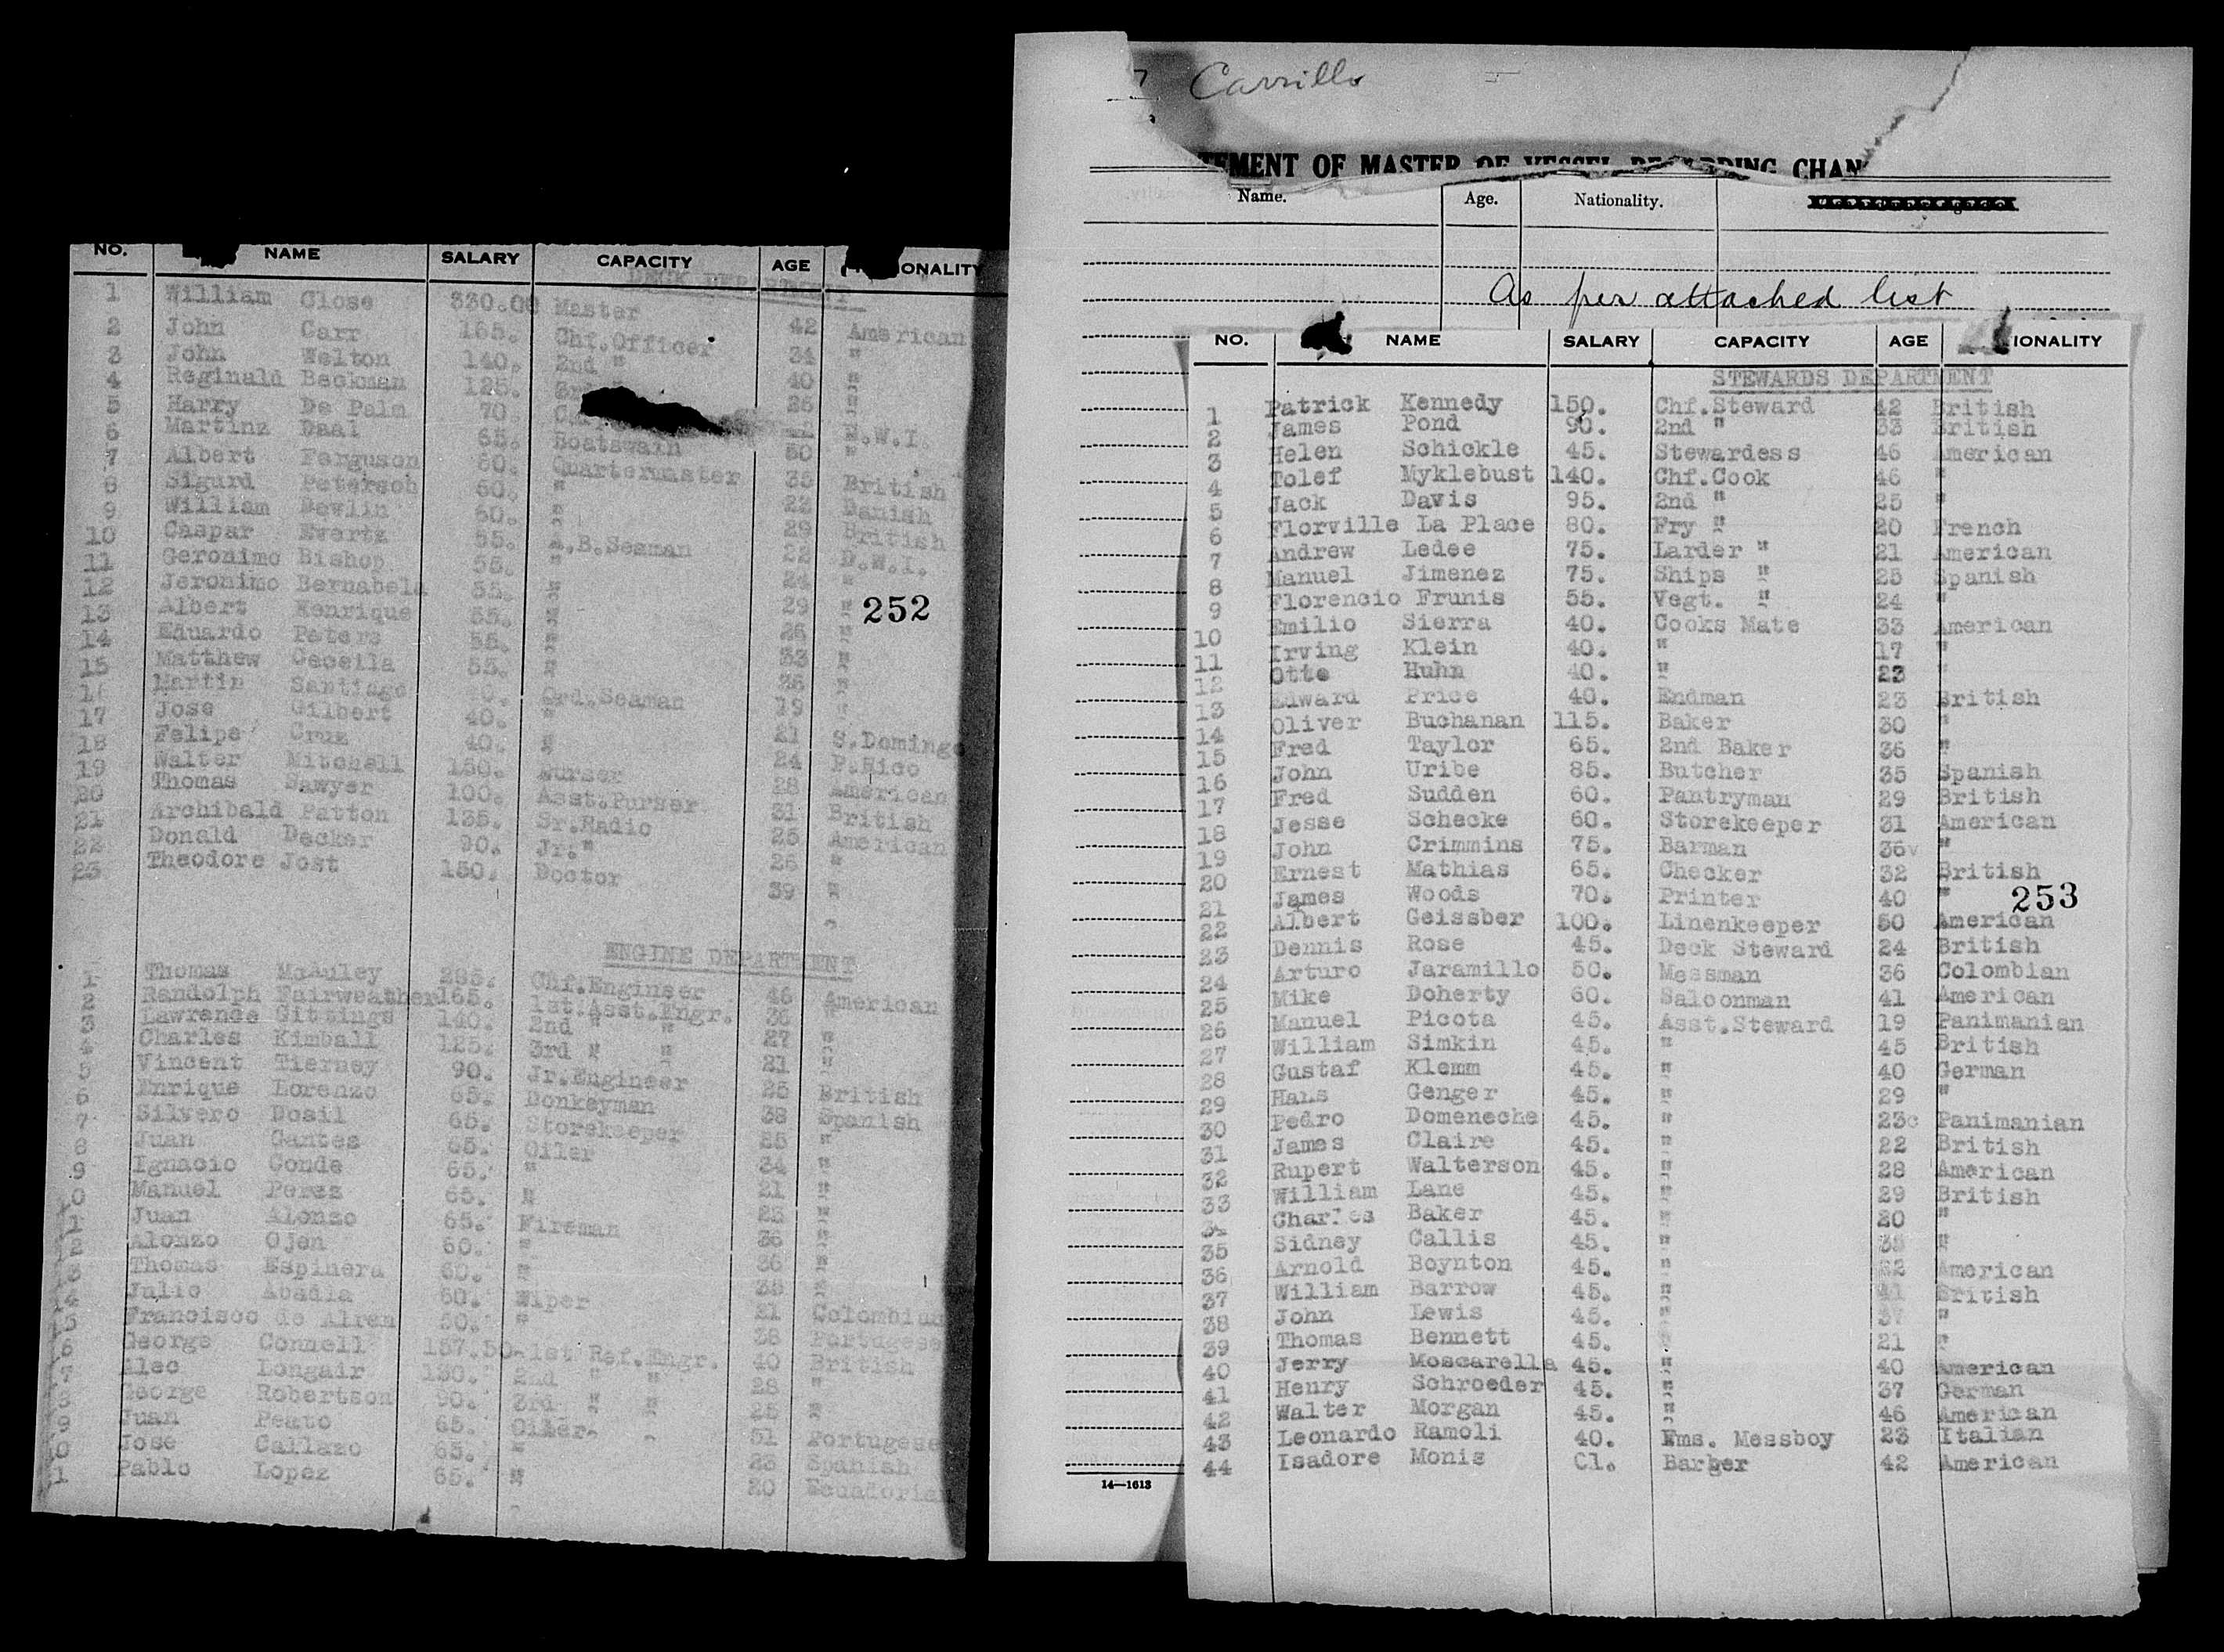 NO. NAME SALARY CAPACITY AGE IONALITY
DECK DEPARTMENT
1 William Close 330.00 Master 42 American
2 John Carr 165. Chf.Officer 34 "
3 John Welton 140. 2nd " 40 "
4 Reginald Beckman 125. 3rd 26 "
5 Harry De Palm 70. N.W.I.
6 Martinz Daal 65. Boatswain 50 "
7 Albert Ferguson 60. Quartermaster 35 British
8 Sigurd Peterson 60. " 22 Danish
9 William Dewlin 60. " 29 British
10 Caspar Evertz 55. A.B.Seaman 22 D.W.I.
11 Geronimo Bishop 55. " 24 "
12 Jeronimo Bernabela 55. " 29 "
13 Albert Henrique 55. " 26 "
14 Eduardo Peters 55. " 33 "
15 Matthew Ceceila 55. " 36 "
Martin Santiago Ord.Seaman 19 "
17 Jose Gilbert 40. " 21 S.Domingo
18 Felipe Cruz 40. " 24 P.Rico
19 Walter Mitchell 150. Purser 28 American
20 Thomas Sawyer 100. Asst.Purser 31 British
21 Archibald Patton 135. Sr.Radio 25 American
22 Donald Decker 90. Jr." 26 "
23 Theodore Jost 150. Doctor 39 "
252
ENGINE DEPARTMENT
1 Thomas McAuley 285. Chf.Engineer 46 American
2 Randolph Fairweather 165. 1st.Asst.Engr. 36 "
3 Lawrence Gittings 140. 2nd " " 27 "
4 Charles Kimball 125. 3rd " " 21 "
5 Vincent Tierney 90. Jr.Engineer 25 British
6 Enrique Lorenzo 65. Donkeyman 38 Spanish
7 Silvero Dosil 65. Storekeeper 35 "
8 Juan Cantes 65. Oiler 34 "
9 Ignacio Conde 65. " 21 "
0 Manuel Perez 65. " 23 "
1 Juan Alonzo 65. Fireman 36 "
2 Alonzo Ojen 60. " 36 "
3 Thomas Espinera 60. " 35 "
4 Julio Abadia 50. Wiper 21 Colombian
5 Francisco de Alrem 50. " 38 Portugese
6 George Connell 157.50 1st Ref.Engr. 40 British
7 Alec Longair 130. 2nd " " 28 "
8 George Robertson 90. 3rd " " 25 "
9 Juan Peato 65. Oiler 51 Portugese
0 Jose Callazo 65. " 25 Spanish
1 Pablo Lopez 65. " 20 Ecuadorian
7 Carrillo
TEMENT OF MASTER OF VESSEL REGARDING CHAN
Name. Age. Nationality.
As per attached list
NO. NAME SALARY CAPACITY AGE IONALITY
STEWARDS DEPARTMENT
1 Patrick Kennedy 150. Chf.Steward 42 British
2 James Pond 90. 2nd " 33 British
3 Helen Schickle 45. Stewardess 46 American
4 Tolef Myklebust 140. Chf.Cook 46 "
5 Jack Davis 95. 2nd " 25 "
6 Florville La Place 80. Fry " 20 French
7 Andrew Ledee 75. Larder " 21 American
8 Manuel Jimenez 75. Ships " 25 Spanish
9 Florencio Frunis 55. Vegt. " 24 "
10 Emilio Sierra 40. Cooks Mate 33 American
11 Irving Klein 40. " 17 "
12 Otto Huhn 40. " 23 "
13 Edward Price 40. Endman 23 British
14 Oliver Buchanan 115. Baker 30 "
15 Fred Taylor 65. 2nd Baker 36 "
16 John Uribe 85. Butcher 35 Spanish
17 Fred Sudden 60. Pantryman 29 British
18 Jesse Schecke 60. Storekeeper 31 American
19 John Crimmins 75. Barman 36 "
20 Ernest Mathias 65. Checker 32 British
21 James Woods 70. Printer 40 "
253
22 Albert Geissber 100. Linenkeeper 50 American
23 Dennis Rose 45. Deck Steward 24 British
24 Arturo Jaramillo 50. Messman 36 Colombian
25 Mike Doherty 60. Saloonman 41 American
26 Manuel Picota 45. Asst.Steward 19 Panimanian
27 William Simkin 45. " 45 British
28 Gustaf Klemm 45. " 40 German
29 Hans Genger 45. " 29 "
30 Pedro Domeneche 45. " 23 Panimanian
31 James Claire 45. " 22 British
32 Rupert Walterson 45. " 28 American
33 William Lane 45. " 29 British
34 Charles Baker 45. " 20 "
35 Sidney Callis 45. " 38 "
36 Arnold Boynton 45. " American
37 William Barrow 45. " 41 British
38 John Lewis 45. " 37 "
39 Thomas Bennett 45. " 21 "
40 Jerry Moscarella 45. " 40 American
41 Henry Schroeder 45. " 37 German
42 Walter Morgan 45. " 46 American
43 Leonardo Ramoli 40. Fms. Messboy 23 Italian
44 Isadore Monis Cl. Barber 42 American
14—1613